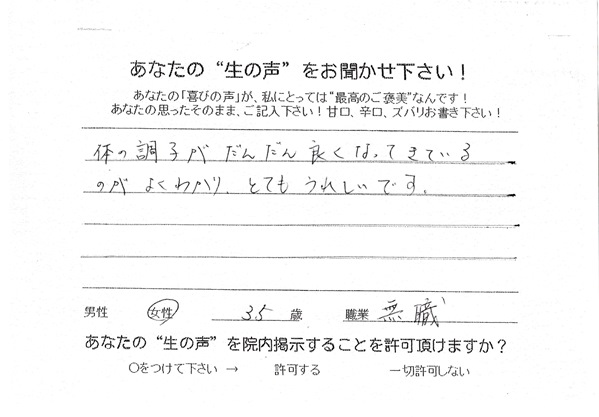 あなたの“生の声”をお聞かせ下さい！
あなたの「喜びの声」が、私にとっては“最高のご褒美”なんです！
あなたの思ったそのまま、ご記入下さい！甘口、辛口、ズバリお書き下さい！
体の調子が だんだん 良くなってきている
のが よくわかり、とても うれしいです。
男性 女性 35 歳 職業 無職
あなたの“生の声”を院内掲示することを許可頂けますか？
〇をつけて下さい → 許可する 一切許可しない